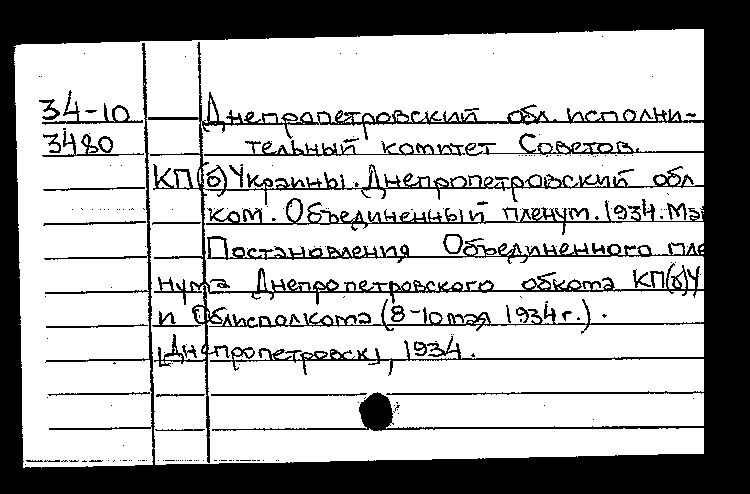 34-10 Днепропетровский обл. исполни-
3480 тельный комитет Советов.
КП(б)Украины. Днепропетровский обл
ком. Объединенный пленум. 1934. Май
Постановления Объединенного пле
нума Днепропетровского обкома КП(б)У
и Облисполкома (8-10 мая 1934 г.).
[Днепропетровск], 1934.